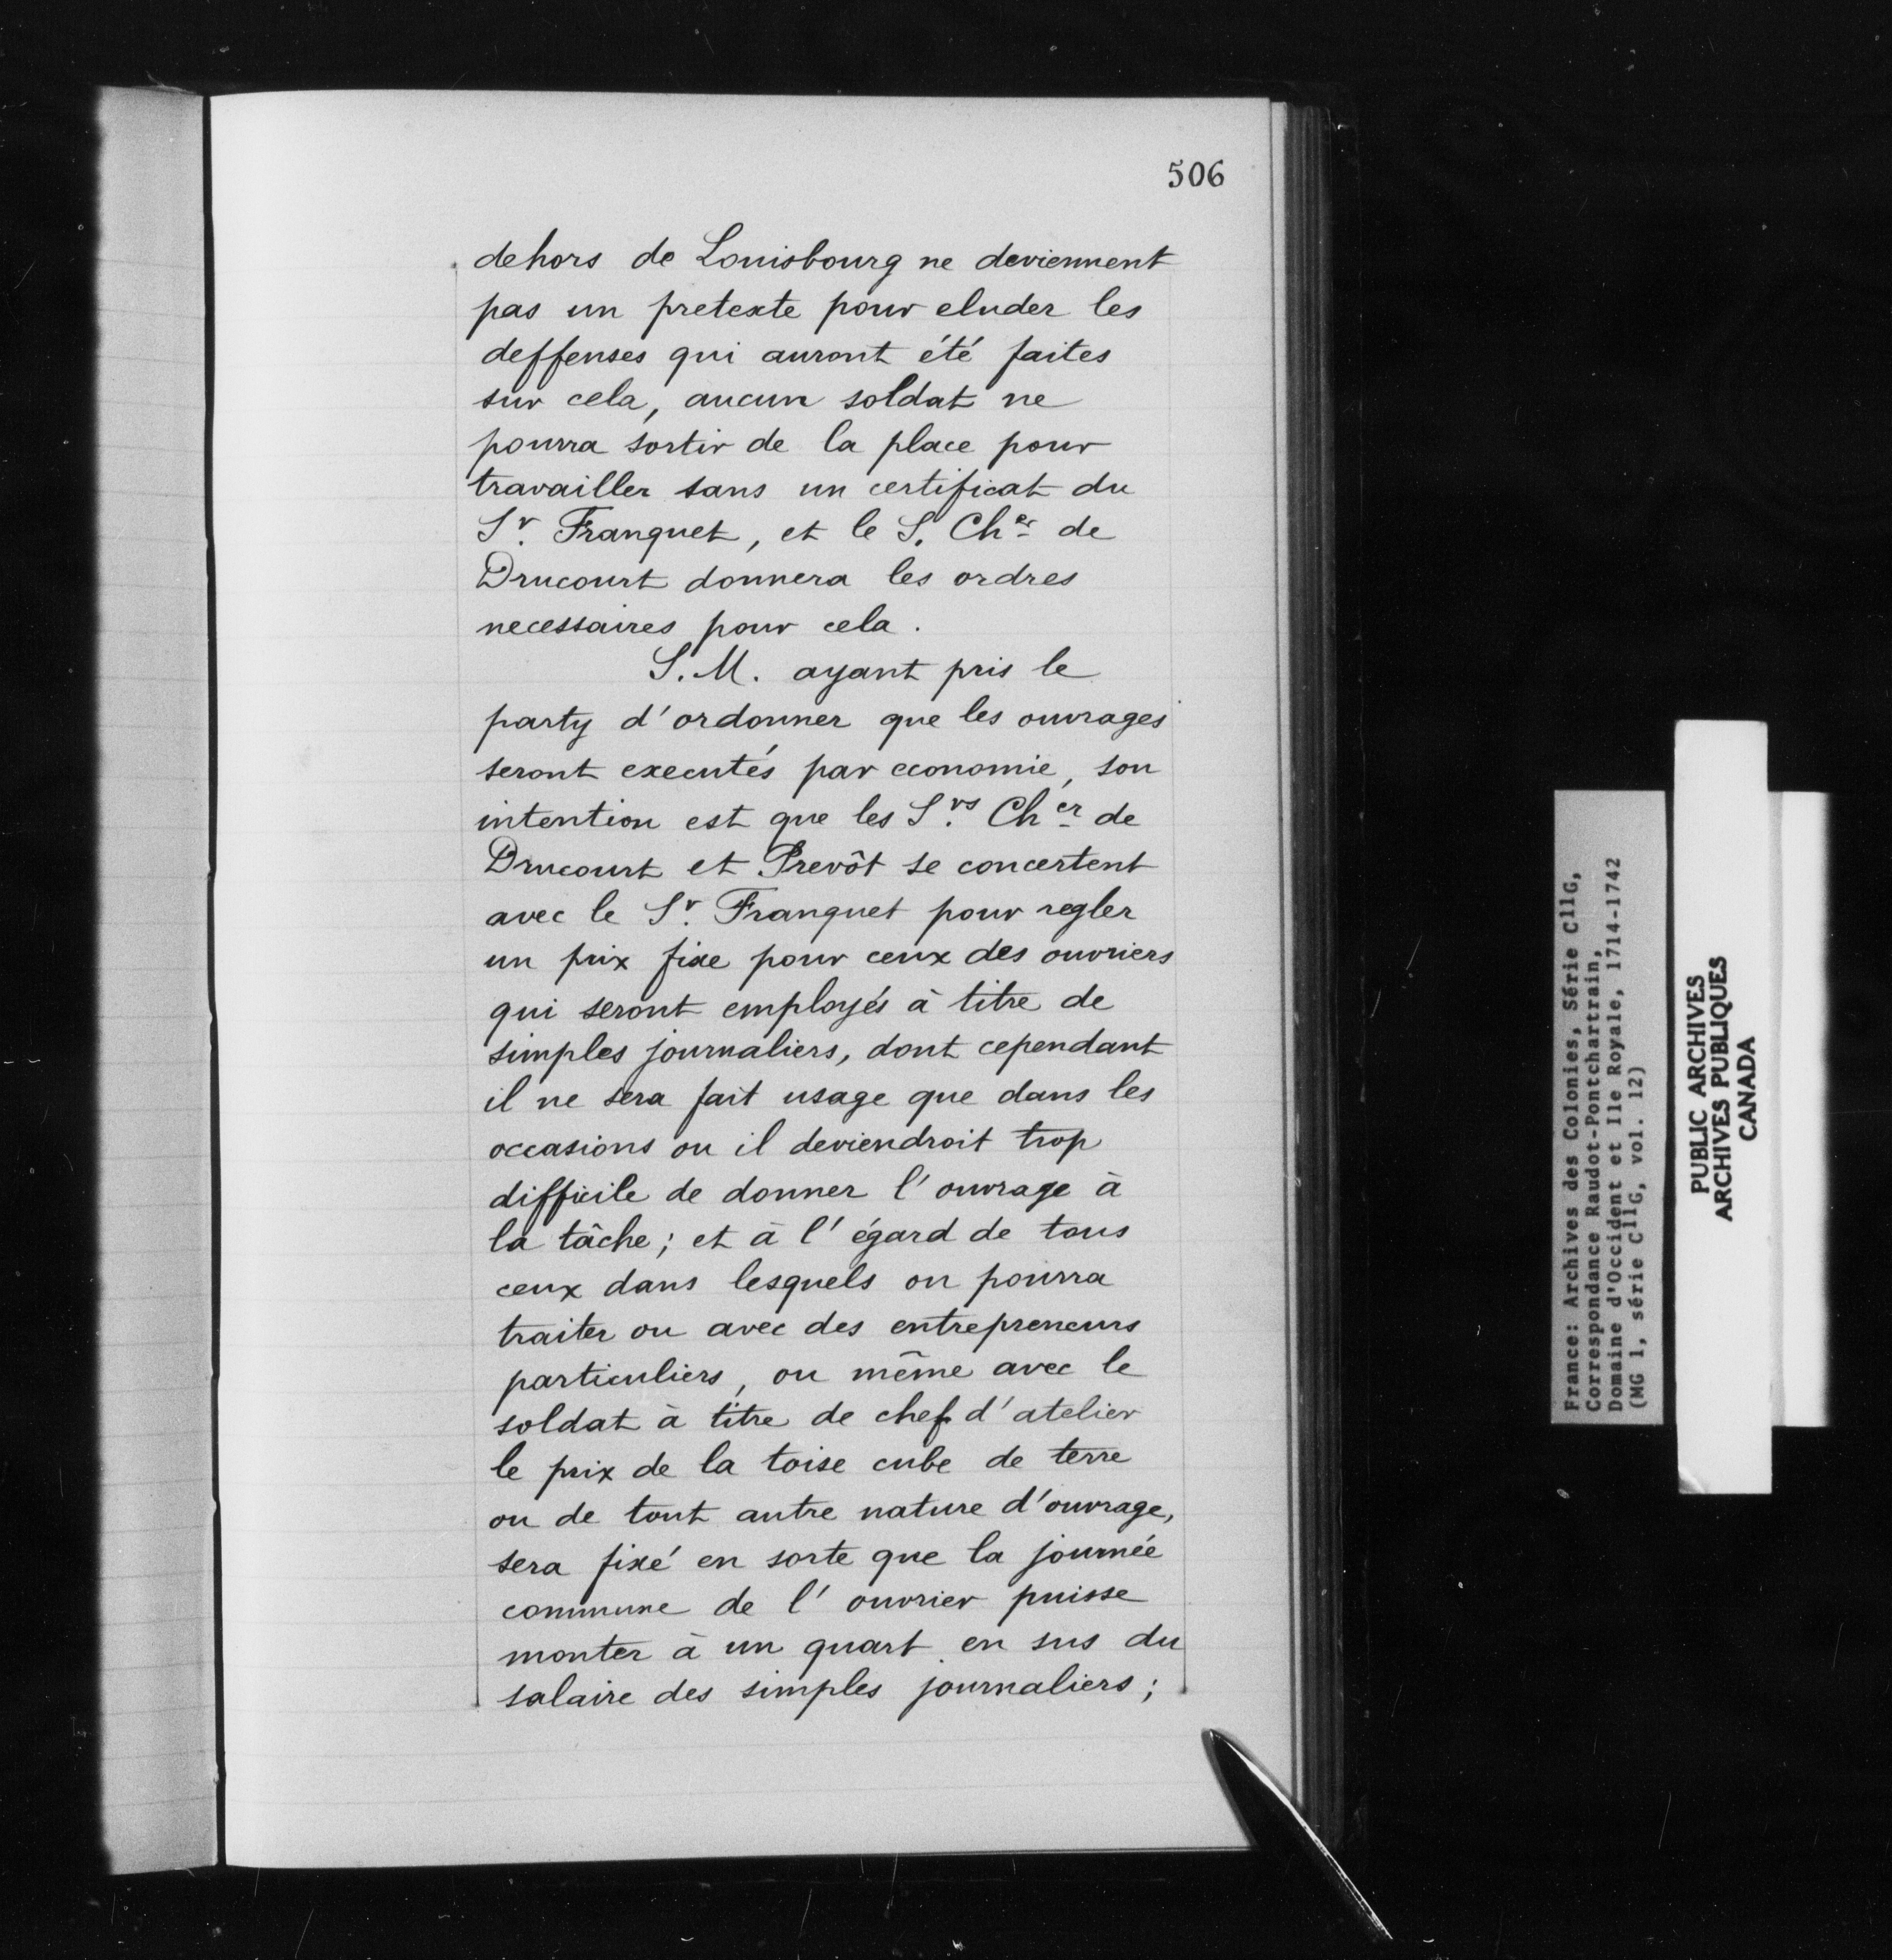 506
dehors de Louisbourg ne deviennent
pas un pretexte pour eluder les
deffenses qui auront été faites
sur cela, aucun soldat ne
pourra sortir de la place pour
travailler sans un certificat du
Sr. Franquet, et le S. Cher de
Drucourt donnera les ordres
necessaires pour cela.
S. M. ayant pris le
party d'ordonner que les ouvrages
seront executés par economie, son
intention est que les Srs. Cher de
Drucourt et Prevôt se concertent
avec le Sr. Franquet pour regler
un prix fixe pour ceux des ouvriers
qui seront employés à titre de
simples journaliers, dont cependant
il ne sera fait usage que dans les
occasions ou il deviendroit trop
difficile de donner l'ouvrage à
la tâche; et à l'égard de tous
ceux dans lesquels on pourra
traiter ou avec des entrepreneurs
particuliers, ou même avec le
soldat à titre de chef d'atelier
le prix de la toise cube de terre
ou de tout autre nature d'ouvrage,
sera fixé en sorte que la journée
commune de l'ouvrier puisse
monter à un quart en sus du
salaire des simples journaliers;
France: Archives des Colonies, Série C11G,
Correspondance Raudot-Pontchartrain,
Domaine d'Occident et Ile Royale, 1714-1742
(MG 1, série C11G, vol. 12)
PUBLIC ARCHIVES
ARCHIVES PUBLIQUES
CANADA